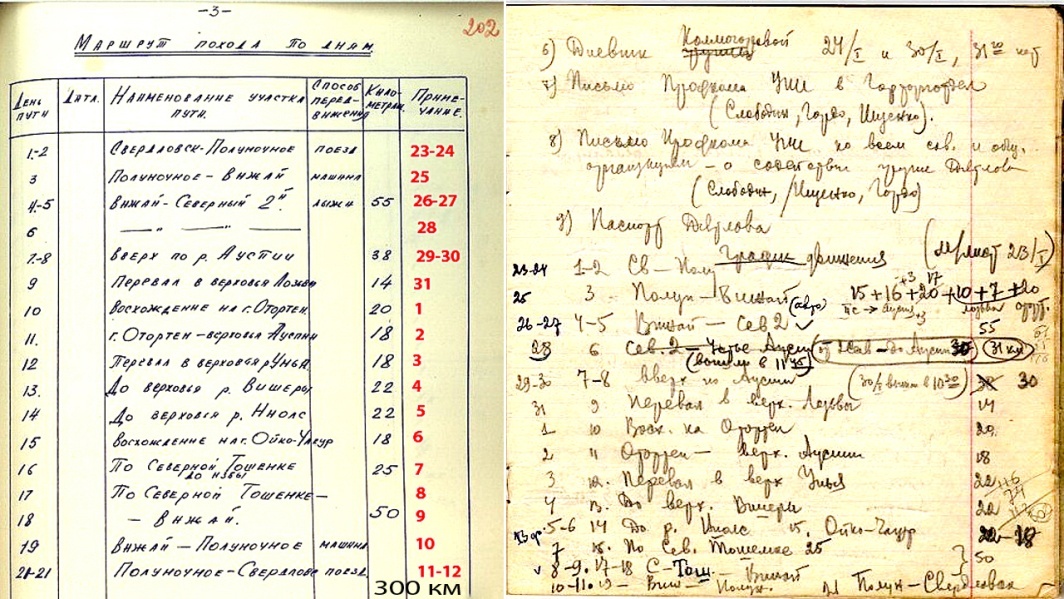 -3-
202
Маршрут похода по дням
День пути Дата. Наименование участка пути. Способ передвижения Километраж Примечание.
1-2 Свердловск-Полуночное поезд 23-24
3 Полуночное-Вижай машина 25
4-5 Вижай-Северный 2й. лыжи 55 26-27
6 — " — " — 28
7-8 Вверх по р. Ауспии 38 29-30
9 Перевал в верховья Лозьвы 14 31
10 Восхождение на г. Отортен 20 1
11. г. Отортен-верховья Ауспии 18 2
12 Перевал в верховья р. Унья 18 3
13. До верховья р. Вишеры 22 4
14 До верховья р. Ниолс 22 5
15 Восхождение на г. Ойко-Чакур 18 6
16 По Северной Тошенке до избы 25 7
17 По Северной Тошенке- 8
18 - Вижай. 50 9
19 Вижай-Полуночное машина 10
20-21 Полуночное-Свердловск поезд 11-12
300 км
6) Дневник Колмогоровой 24/I и 30/I, 31
7) Письмо Профкома УПИ в
(Слободин, Гордо, Ищенко).
8) Письмо Профкома УПИ ко всем сов. и общ.
организациям - о содействии группе Дятлова
(Слободин, Ищенко, Гордо)
9) Паспорт Дятлова
График движения
23-24 1-2 Св-Пол
25 3 Полун-Вижай (авто) 15+16+20+10+7+20
26-27 4-5 Вижай-Сев 2 55
28 6 Сев. 2-Устье Ауспии 30 (31 км)
(вышли в 11 45)
29-30 7-8 вверх по Ауспии (30/I вышли в 10 30) 38 30
31 9 Перевал в верх. Лозьвы 14
1 10 Восх. на Отортен 20
2 11 Отортен-верх. Ауспии 18
3 12. Перевал в верх Унья
4 13. До верх. Вишеры 22
5-6 14 До р. Ниолс 15. Ойко-Чакур 18
7 16. По Сев. Тошемке 25
8-9. 17-18 С-Тош.-Вижай 50
10-11. 19-Виж-Полун. 21 Полун-Свердловск